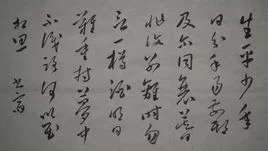 生平少年
日分手易前期
及尔同衰暮
非復別離時勿
言一樽酒明日
難重持夢中
不識路何以慰
相思